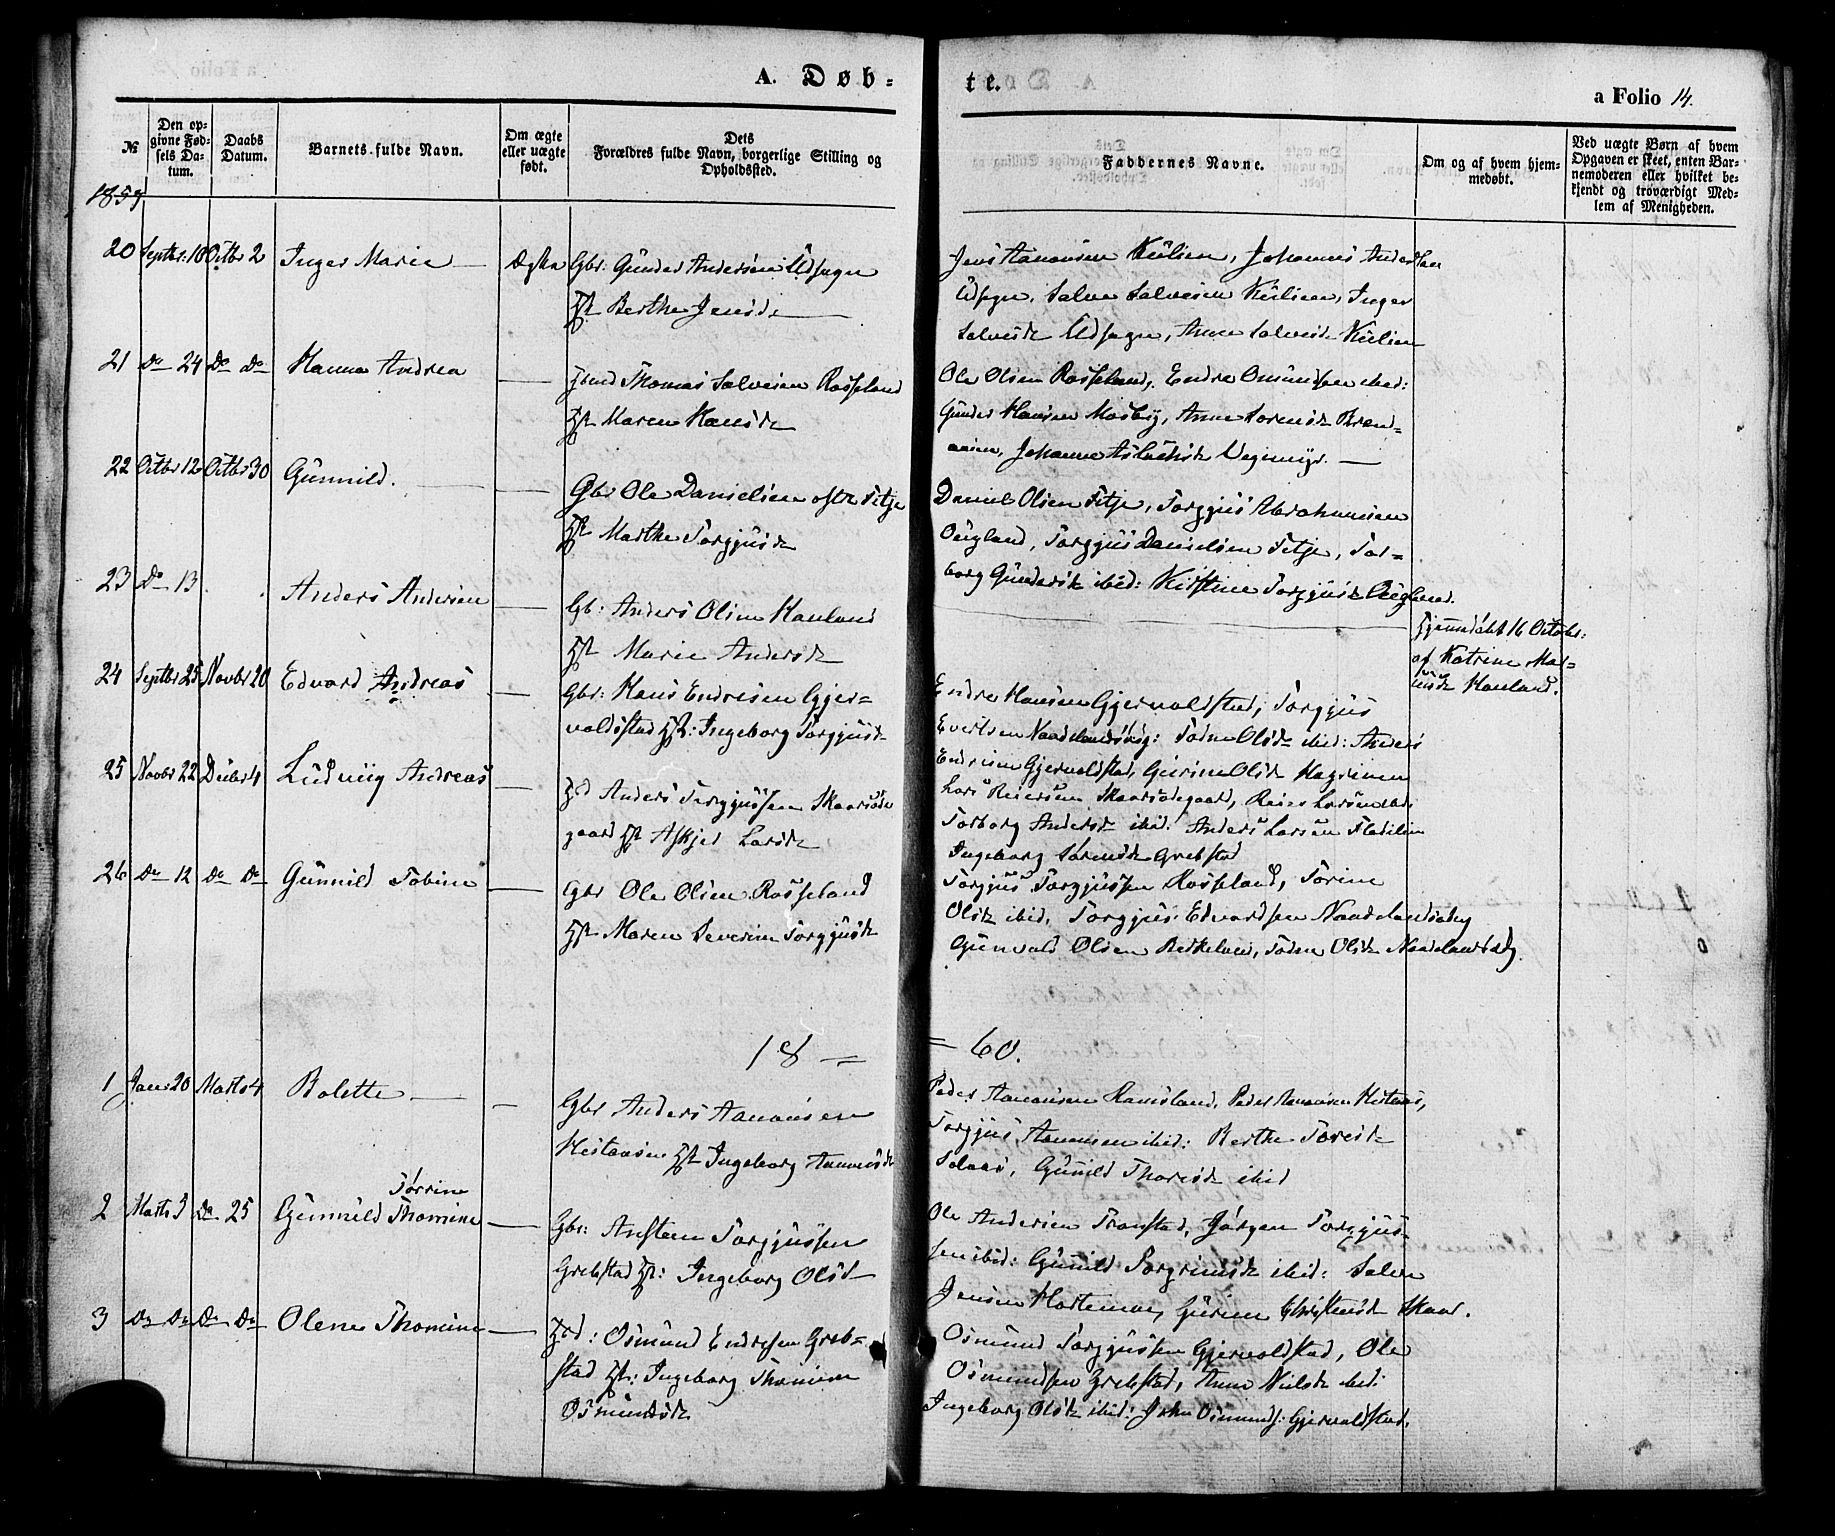 A. Døb= te.
a Folio 14.
№
Den opgivne Fødsels Datum.
Daabs Datum.
Barnets fulde Navn.
Om ægte eller uægte født.
Dets Forældres fulde Navn, borgerlige Stilling og Opholdssted.
Faddernes Navne.
Om og af hvem hjemmedøbt.
Ved uægte Børn af hvem Opgaven er skeet, enten Barnemoderen eller hvilket bekjendt og troværdigt Medlem af Menigheden.
1859
20 Septbr: 10 Octbr 2 Inger Marie Ægte Gbr: Gunder Andersen Udsogn
Hst Berthe Jensd
Jens Aanonsen Kulien, Johannes Andersen
Udsogn, Salve Salvesen Kulien, Inger
Salvesdr Udsogn, Anne Salvesdr Kulien
21 Do 24 Do Do Hanna Andrea
Thomas Salvesen Rosseland
Hst Maren Hansdr
Ole Olsen Rosseland, Endre Omundsen ibid:
Gunder Hansen Mosby, Anne Sorensdr
Johanne Vegemyr.
22 Octbr 12 Octbr 30 Gunnild.
Gbr Ole Danielsen Fitje
Hst Marthe Torgjusdr
Daniel Olsen Fitje, Torgjus Abrahamsen
Øugland, Torgjus Danielsen Fitje, Tor=
borg Gundersdr ibid: Kirstine Torgjusdr Øugland.
23 Do 13 Anders Andersen
Gb: Anders Olsen Hauland
Hst Marie Andersdr
Hjemmdøbt 16 October:
af Katrine
Hauland.
24 Septbr 25 Novbr 20 Edvard Andreas
Gbr: Hans Endresen Gjer=
voldstad Hst: Ingeborg Torgjusdr
Endre Hansen Gjervoldstad, Torgjus
Evertsen Olsdr ibid: Anders
Endresen Gjervoldstad, Gurine Olsdr
25 Novbr 22 Decbr 4 Ludvig Andreas
Anders Torgjussen Skaarsøde
gaard Hst Askjer Larsdr
Lars Reiersen Skaarsødegaard, Reier Larsen ibd:
Torborg Andersdr ibid: Anders Larsen
Ingeborg Sørensdr Grebstad
26 Do 12 Do Do Gunnild Tobine
Gbr Ole Olsen Rosseland
Hst Maren Severine Torgjusdr
Torgjus Torgjussen Rosseland, Torine
Olsdr ibid, Torgjus Edvardsen
Gunvald Olsen Birkeland, Olsdr
18 = = 60.
1 Janr 20 Marts 4 Bolette
Gbr Anders Aanonsen
Hst Ingeborg
Peder Aanonsen Ramsland, Peder Aanonsen
Torgjus Aanonsen ibid: Berthe
Gunild Thoresdr ibid
Tørrine
2 Marts 3 Do 25 Gunnild Thomine
Gbr: Ansten Torgjussen
Grebstad Hst: Ingeborg Olsdr
Ole Andersen Tronstad, Jørgen Torgjus=
sen ibid: Gunild Torgrimsdr ibid: Salve
Jensen Gurine Christensdr Skaar.
3 Do Do Do Do Olene Thomine
Osmund Endresen Greb=
stad Hst: Ingeborg Thomine
Osmundsdr
Osmund Torgjussen Gjervoldstad, Ole
Osmundsen Grebstad, Anne Nielsdr ibid:
Ingeborg Olsdr ibid: John Osmunds: Gjervoldstad.